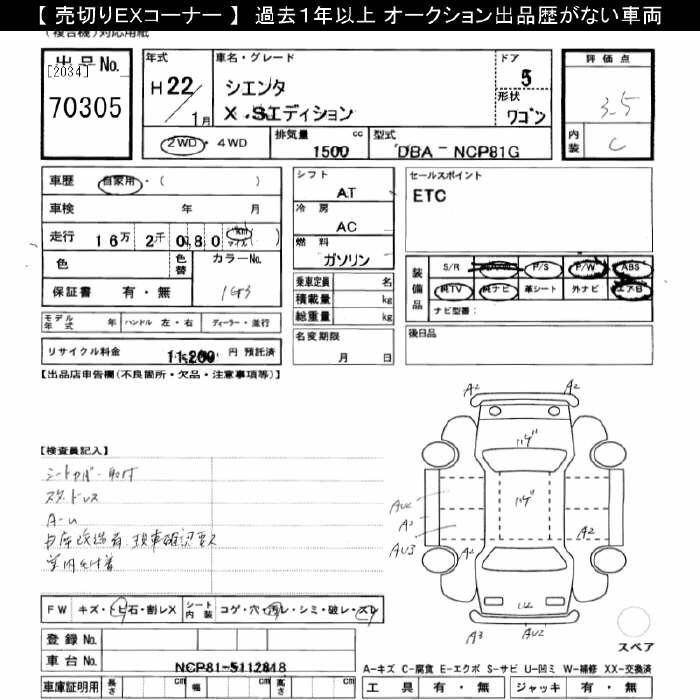 【 売切りEXコーナー 】 過去1年以上 オークション出品歴がない車両
(複合機)対応用紙
出品No.
[2034]
70305
年式
H22/1月
車名・グレード
シエンタ
X .Sエディション
ドア
5
形状
ワゴン
評価点
3.5
内装
C
2WD ・ 4WD
排気量 cc
1500
型式
DBA - NCP81G
車歴 自家用・( )
車検 年 月
走行 16万 2千 080 km マイル ( )
色 色替 カラーNo.
保証書 有・無 1G3
モデル年式 年 ハンドル 左・右 ディーラー・並行
リサイクル料金 11,200 円 預託済
シフト
AT
冷房
AC
燃料
ガソリン
乗車定員 名
積載量 kg
総重量 kg
名変期限
月 日
セールスポイント
ETC
装備品
S/R P/S P/W ABS
純TV 純ナビ 革シート 外ナビ エアB
ナビ型番:
後日品
【出品店申告欄(不良箇所・欠品・注意事項等)】
【検査員記入】
シートカバー取付
スタッドレス
A-u
車庫改造有 現車確認要ス
室内キズ着
A2 A2
ハゲ
ハゲ
A3
AU3
A2
A2
U2
A3 AU2
スペア
FW キズ・ヒ石・割レX シート内装 コゲ・穴・汚レ・シミ・破レ・スレ
登録 No.
車台 No.
NCP81-5112818
車庫証明用 長さ cm 幅 cm 高さ cm
A-キズ C-腐食 E-エクボ S-サビ U-凹ミ W-補修 XX-交換済
工具 有・無 ジャッキ 有・無